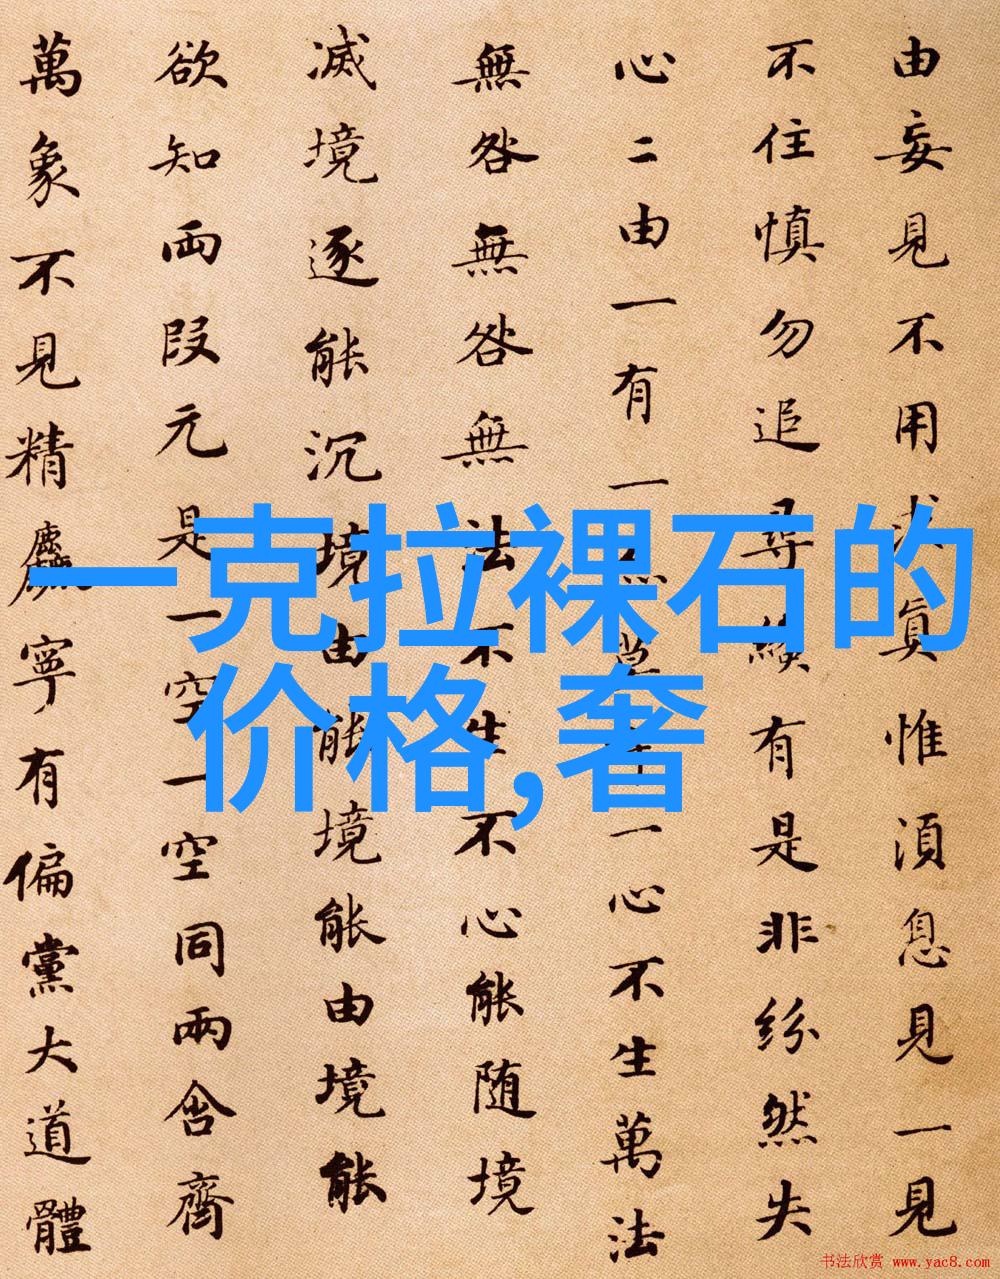 由妄見不用求眞惟湏息見一見
不住慎勿追尋纔有是非紛然失
心二由一有一一心不生萬法
無咎無咎無法不生不心能随境
滅境逐能沉境由能境能由境能
欲知両段元是一空一空同兩含齊
萬象不見精麤寧有偏黨大道體
一克拉裸石的
价格,奢
书法欣赏 www.yac8.com